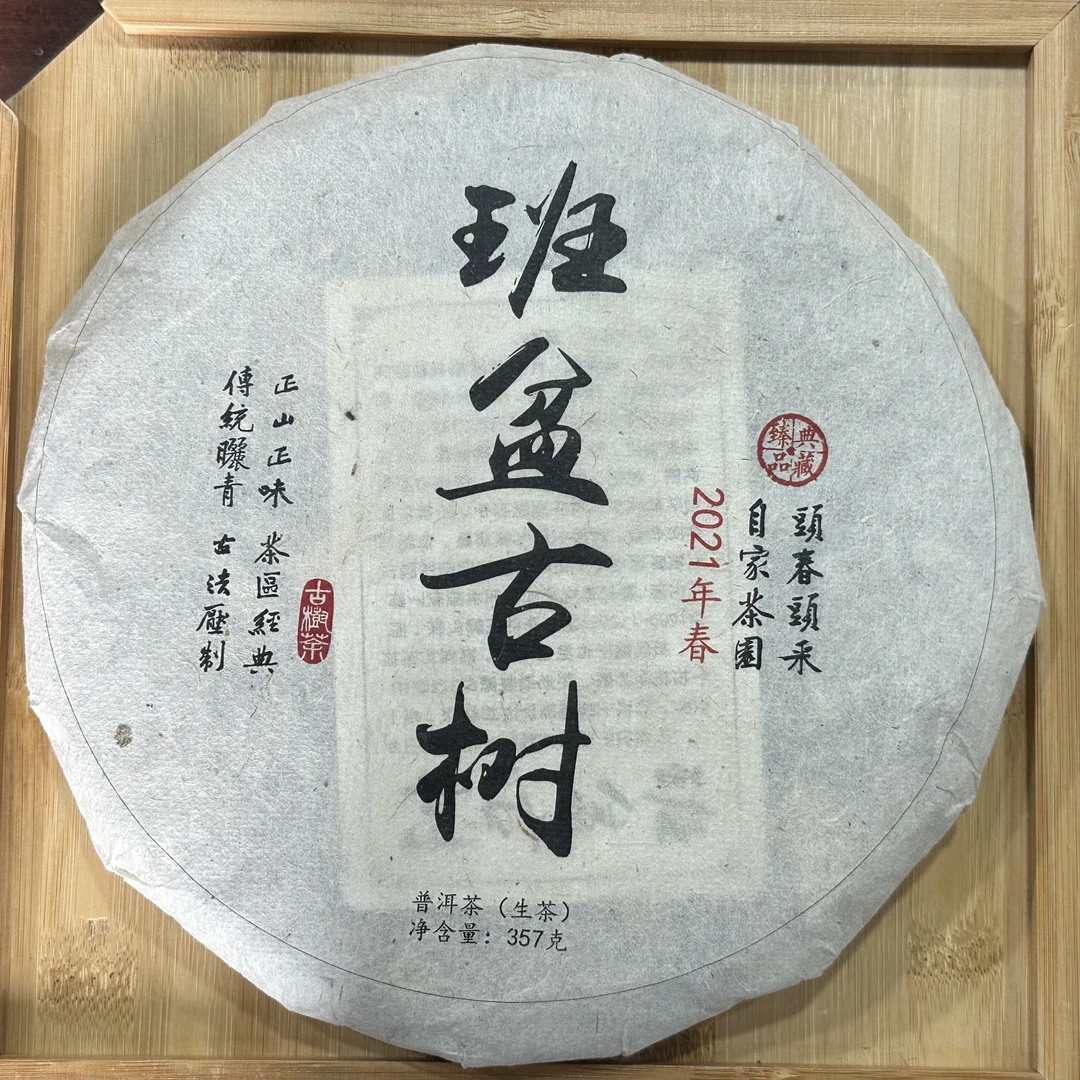 班盆古树
典藏
臻品
頭春頭采
自家茶園
2021年春
正山正味 茶區經典
傳統曬青 古法壓制
古樹茶
普洱茶（生茶）
净含量：357克